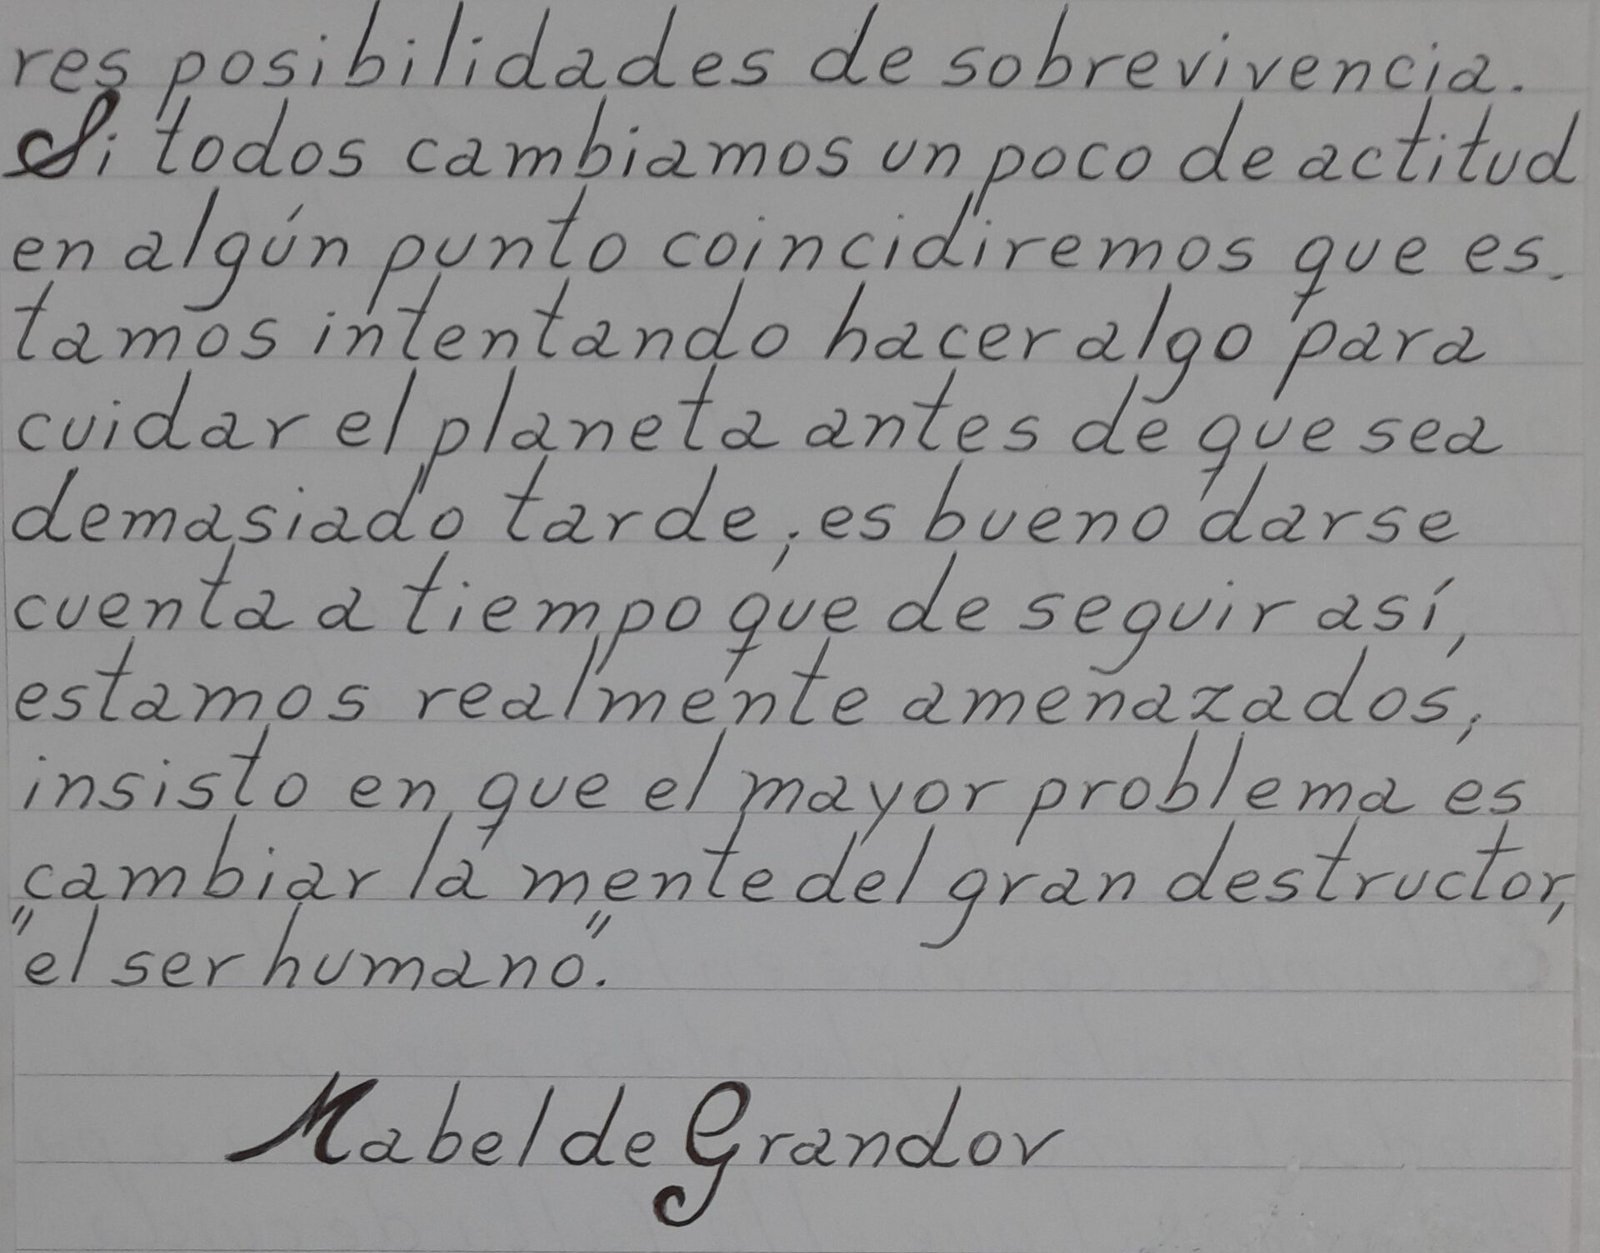 res posibilidades de sobrevivencia.
Si todos cambiamos un poco de actitud
en algún punto coincidiremos que es.
tamos intentando hacer algo para
cuidar el planeta antes de que sea
demasiado tarde; es bueno darse
cuenta a tiempo que de seguir así,
estamos realmente amenazados,
insisto en que el mayor problema es
cambiar la mente del gran destructor,
"el ser humano".
Mabel de Grandov